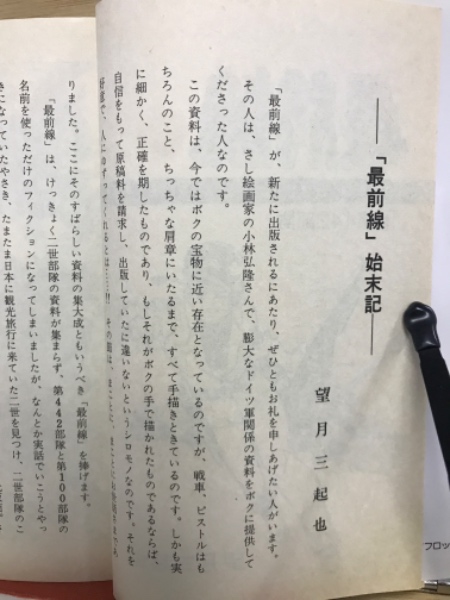 「最前線」始末記
望月三起也
「最前線」が、新たに出版されるにあたり、ぜひともお礼を申しあげたい人がいます。
その人は、さし絵画家の小林弘隆さんで、膨大なドイツ軍関係の資料をボクに提供して
くださった人なのです。
この資料は、今ではボクの宝物に近い存在となっているのですが、戦車、ピストルはも
ちろんのこと、ちっちゃな肩章にいたるまで、すべて手描きときているのです。しかも実
に細かく、正確を期したものであり、もしそれがボクの手で描かれたものであるならば、
自信をもって原稿料を請求し、出版していたに違いないというシロモノなのです。それを
りました。ここにそのすばらしい資料の集大成ともいうべき「最前線」を捧げます。
「最前線」は、けっきょく二世部隊の資料が集まらず、第442部隊と第100部隊の
名前を使っただけのフィクションになってしまいましたが、なんとか実話でいこうとやっ
きになっていたやさき、たまたま日本に観光旅行に来ていた二世を見つけ、二世部隊のこ
フロッ